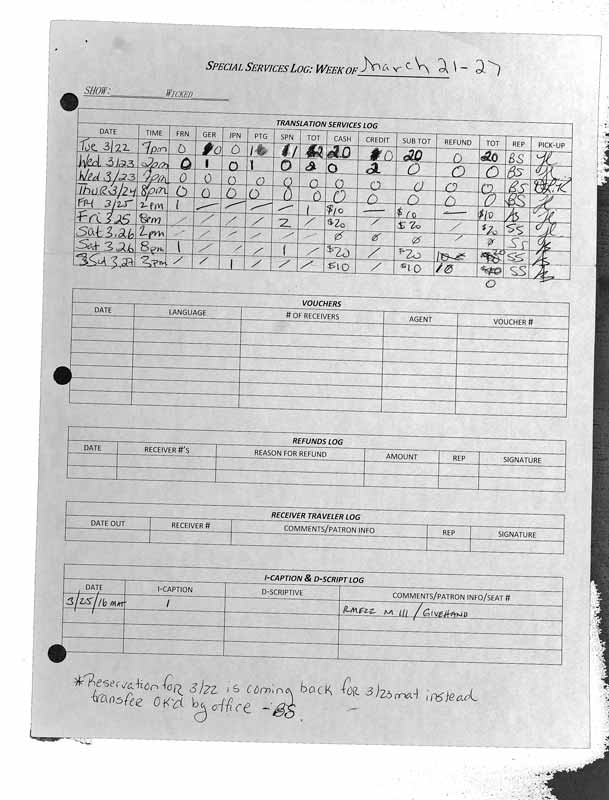 SPECIAL SERVICES LOG: WEEK OF March 21-27
SHOW: WICKED
TRANSLATION SERVICES LOG
DATE TIME FRN GER JPN PTG SPN TOT CASH CREDIT SUB TOT REFUND TOT REP PICK-UP
Tue 3/22 7pm 0 0 0 1 20 0 20 0 20 BS
Wed 3/23 2pm 0 1 0 1 0 2 0 2 0 0 0 BS
Wed 3/23 7pm 0 0 0 0 0 0 0 0 0 0 0 BS
Thur 3/24 8pm 0 0 0 0 0 0 0 0 0 0 0 BS
Fri 3/25 2pm 1 / / / / 1 $10 — $10 — $10
Fri 3.25 8pm / / / / 2 / $20 / $20 / $20
Sat 3.26 2pm / / / / / / ø ø ø / ø SS
Sat 3.26 8pm 1 / / / 1 / $20 / $20 SS
Sun 3.27 3pm / / 1 / / / $10 / $10 10 SS
0
VOUCHERS
DATE LANGUAGE # OF RECEIVERS AGENT VOUCHER #
REFUNDS LOG
DATE RECEIVER #'S REASON FOR REFUND AMOUNT REP SIGNATURE
RECEIVER TRAVELER LOG
DATE OUT RECEIVER # COMMENTS/PATRON INFO REP SIGNATURE
I-CAPTION & D-SCRIPT LOG
DATE I-CAPTION D-SCRIPTIVE COMMENTS/PATRON INFO/SEAT #
3/25/16 MAT 1 RMEZZ M 111 / GIVEHAND
*Reservation for 3/22 is coming back for 3/23 mat instead
transfer OK'd by office -BS.